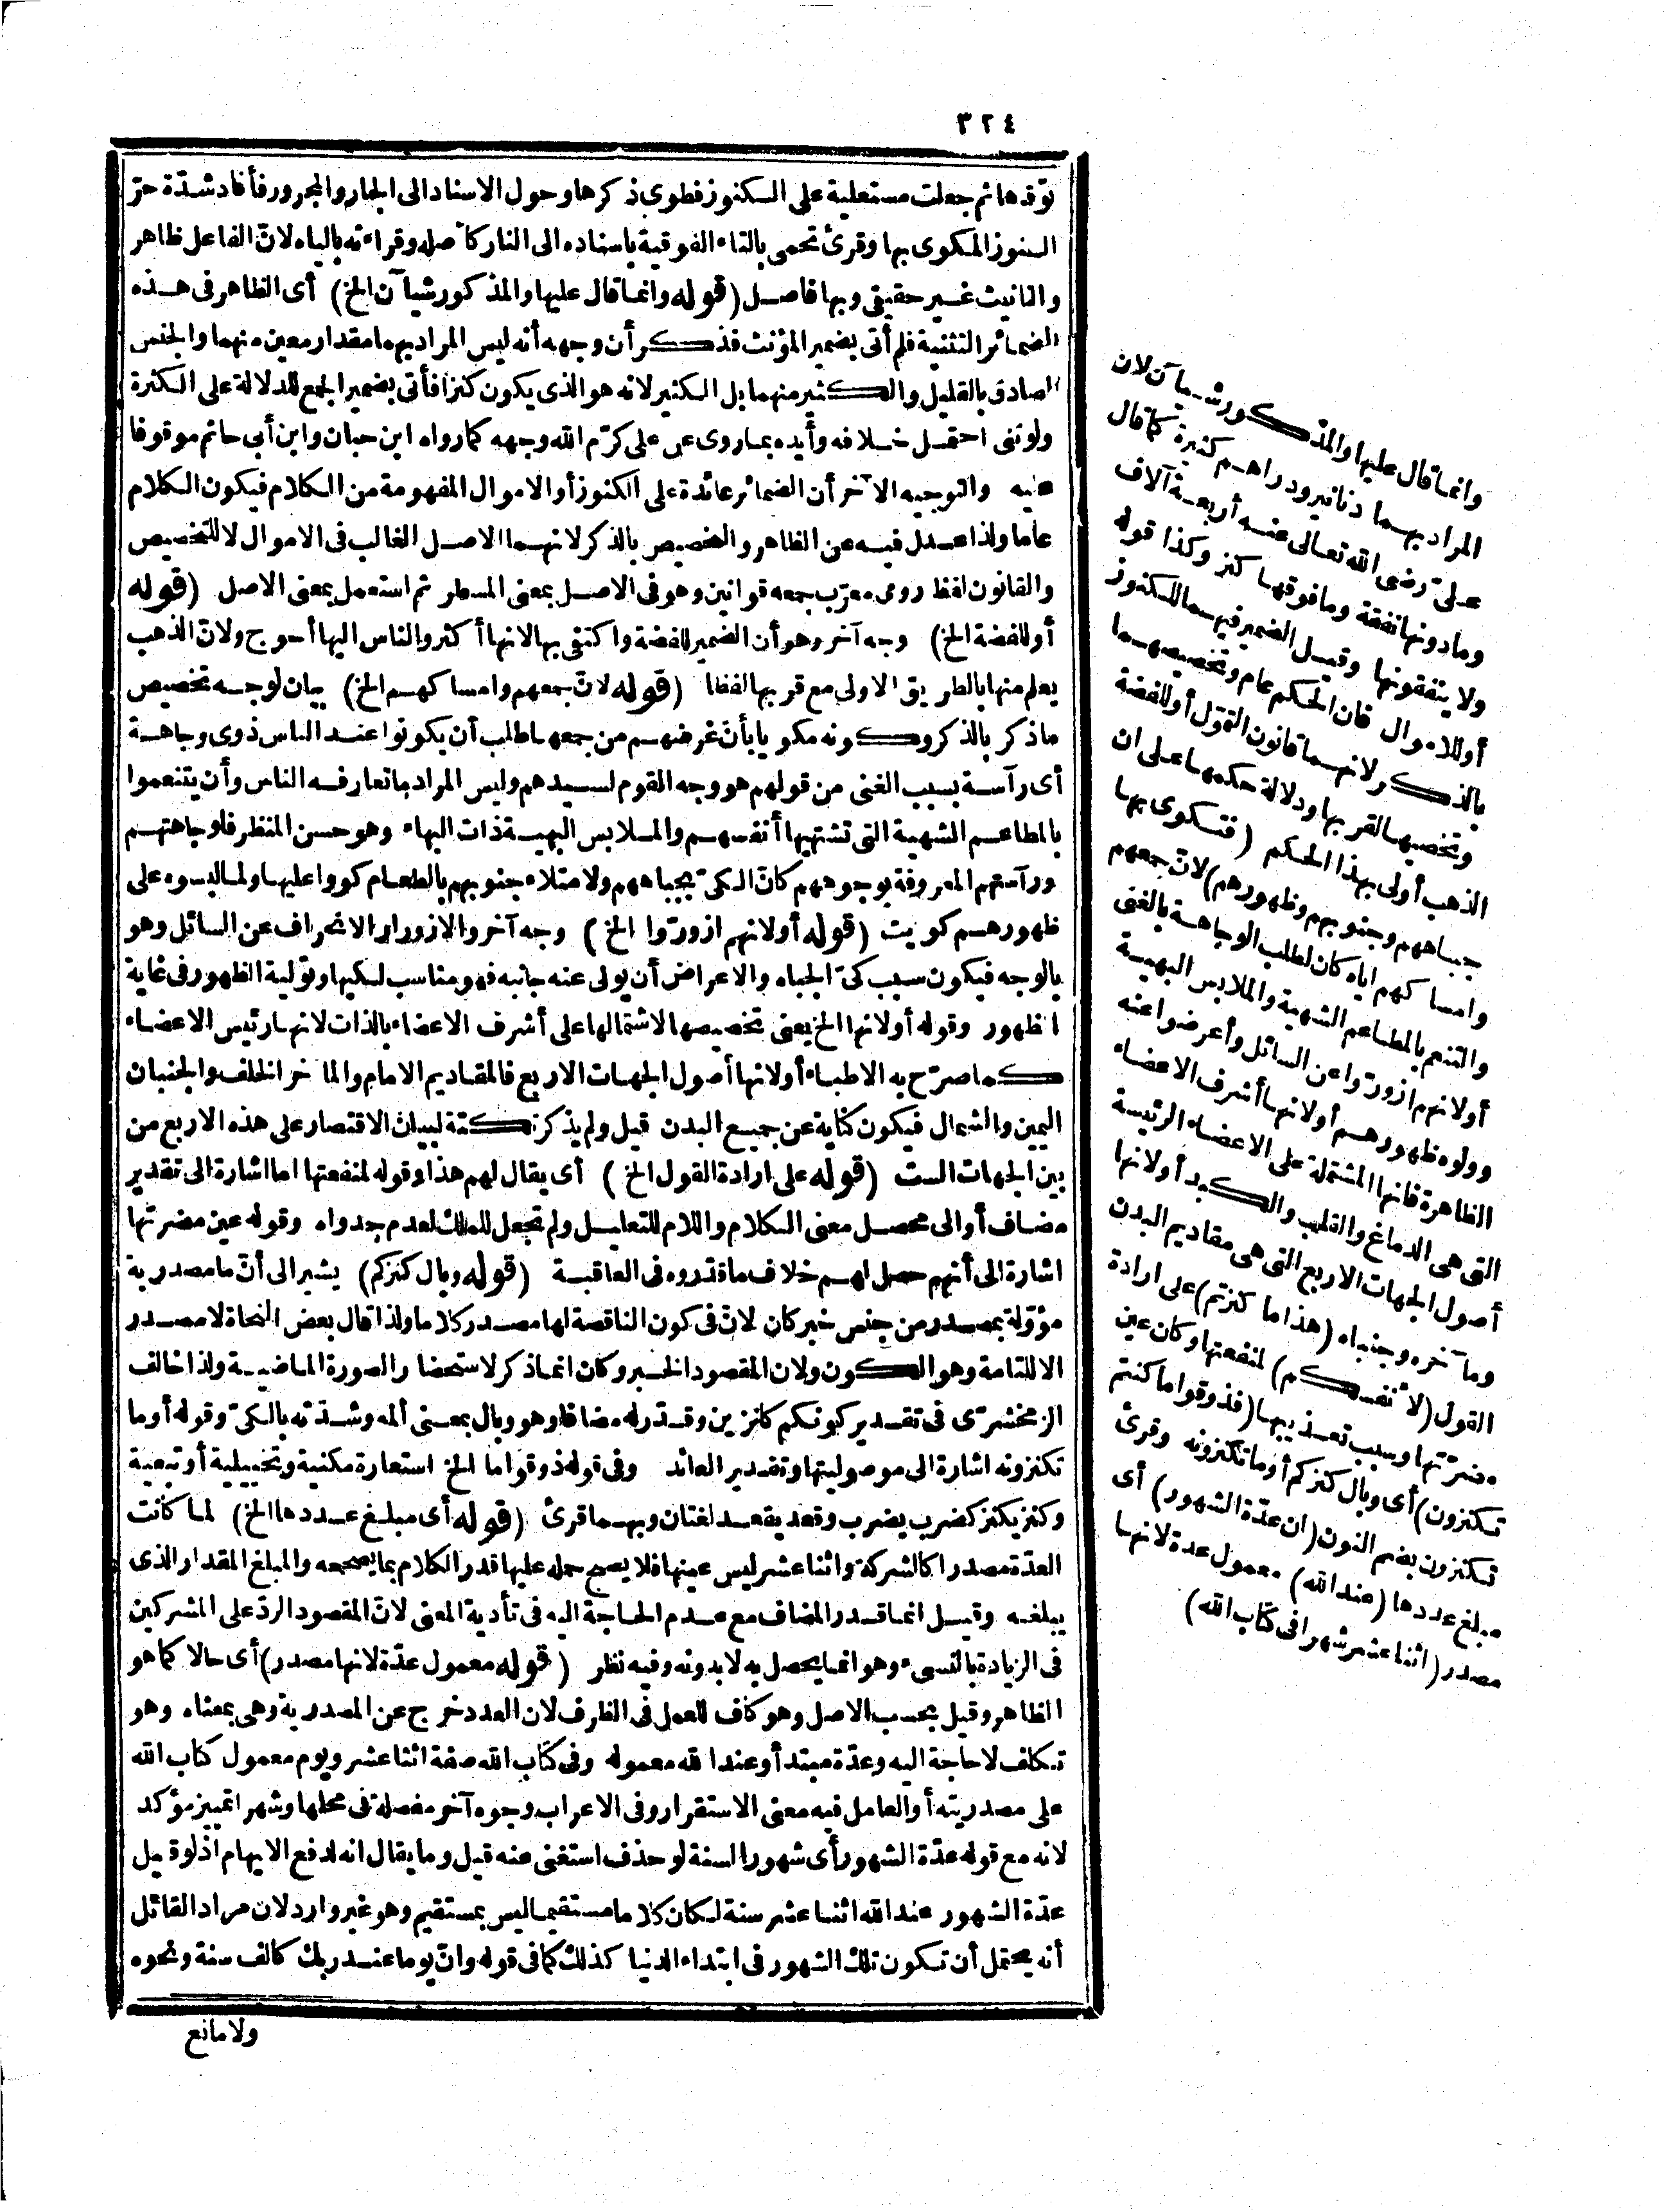 ٣٢٤
توقدها ثم جعلت مستعلية على الكنوز فطوى ذكرها وحول الاسناد الى الجار والمجرور فأفاد شدّة حرّ
الكنوز المكوى بها وقرئ تحمى بالتاء الفوقية باسناده الى النار كأصله وقراءته بالياء لانّ الفاعل ظاهر
والتانيث غير حقيقى وبها فاصل (قوله وانما قال عليها والمذكور شيآن الخ) أى الظاهر فى هذه
الضمائر التثنية فلم أتى بضمير المؤنث فذكر أن وجهه أنه ليس المراد بهما مقدار معين منهما والجنس
الصادق بالقليل والكثير منهما بل الكثير لانه هو الذى يكون كنزا فأتى بضمير الجمع للدلالة على الكثرة
ولو ثنى احتمل خلافه وأيده بما روى عن على كرّم الله وجهه كما رواه ابن حبان وابن أبى حاتم موقوفا
عليه والتوجيه الآخر أن الضمائر عائدة على الكنوز أو الاموال المفهومة من الكلام فيكون الكلام
عاما ولذا عدل فيه عن الظاهر والتخصيص بالذكر لانهما الاصل الغالب فى الاموال لا للتخصيص
والقانون لفظ رومى معرّب جمعه قوانين وهو فى الاصل بمعنى المسطر ثم استعمل بمعنى الاصل (قوله
أو للفضة الخ) وجه آخر وهو أن الضمير للفضة واكتفى بها لانها أكثر والناس اليها أحوج ولانّ الذهب
يعلم منها بالطريق الاولى مع قربها لفظا (قوله لانّ جمعهم وامساكهم الخ) بيان لوجه تخصيص
ما ذكر بالذكر وكونه مكويا بأنّ غرضهم من جمعها طلب أن يكونوا عند الناس ذوى وجاهة
أى رآسة بسبب الغنى من قولهم هو وجه القوم لسيدهم وليس المراد ما تعارفه الناس وأن يتنعموا
بالمطاعم الشهية التى تشتهيها أنفسهم والملابس البهية ذات البهاء وهو حسن المنظر فلوجاهتهم
ورآستهم المعروفة بوجوههم كانّ الكىّ بجباههم ولامتلاء جنوبهم بالطعام كووا عليها ولما لبسوه على
ظهورهم كويت (قوله أو لانهم ازورّوا الخ) وجه آخر والازورار الانحراف عن السائل وهو
بالوجه فيكون سبب كىّ الجباه والاعراض أن يولى عنه جانبه فهو مناسب لكيها وتولية الظهور فى غاية
الظهور وقوله أو لانها الخ يعنى تخصيصها لاشتمالها على أشرف الاعضاء بالذات لانها رئيس الاعضاء
كما صرّح به الاطباء أو لانها أصول الجهات الاربع فالمقاديم الامام والمآخر الخلف والجنبان
اليمين والشمال فيكون كناية عن جميع البدن قيل ولم يذكر نكتة لبيان الاقتصار على هذه الاربع من
بين الجهات الست (قوله على ارادة القول الخ) أى يقال لهم هذا وقوله لمنفعتها اما اشارة الى تقدير
مضاف أو الى محصل معنى الكلام واللام للتعليل ولم تجعل للملك لعدم جدواه وقوله عين مضرتها
اشارة الى أنهم حصل لهم خلاف ما قدّروه فى العاقبة (قوله وبال كنزكم) يشير الى أنّ ما مصدرية
مؤوّلة بمصدر من جنس خبر كان لانّ فى كون الناقصة لها مصدر كلاما ولذا قال بعض النحاة لا مصدر
الا للتامة وهو الكون ولان المقصود الخبر وكان انما ذكر لاستحضار الصورة الماضية ولذا خالف
الزمخشرىّ فى تقدير كونكم كانزين وقدّر له مضافا وهو وبال بمعنى ألمه وشدّته بالكىّ وقوله أو ما
تكنزونه اشارة الى موصوليتها وتقدير العائد وفى قوله ذوقوا ما الخ استعارة مكنية وتخييلية أو تبعية
وكنز يكنز كضرب يضرب وقعد يقعد لغتان وبهما قرئ (قوله أى مبلغ عددها الخ) لما كانت
العدّة مصدرا كالشركة واثنا عشر ليس عينها فلا يصح حمله عليها قدر الكلام بما يصححه والمبلغ المقدار الذى
يبلغه وقيل انما قدر المضاف مع عدم الحاجة اليه فى تأدية المعنى لانّ المقصود الردّ على المشركين
فى الزيادة بالنسىء وهو انما يحصل به لا بدونه وفيه نظر (قوله معمول عدّة لانها مصدر) أى حالا كما هو
الظاهر وقيل بحسب الاصل وهو كاف للعمل فى الظرف لان العدد خرج عن المصدرية وهى بمعناه وهو
تكلف لا حاجة اليه وعدّة مبتدأ وعند الله معموله وفى كتاب الله صفة اثنا عشر ويوم معمول كتاب الله
على مصدريته أو العامل فيه معنى الاستقرار وفى الاعراب وجوه آخر مفصلة فى محلها وشهرا تمييز مؤكد
لانه مع قوله عدّة الشهور أى شهور السنة لو حذف استغنى عنه قيل وما يقال انه لدفع الايهام اذ لو قيل
عدّة الشهور عند الله اثنا عشر سنة لكان كلاما مستقيما ليس بمستقيم وهو غير وارد لان مراد القائل
أنه يحتمل أن تكون تلك الشهور فى ابتداء الدنيا كذلك كما فى قوله وانّ يوما عند ربك كالف سنة ونحوه
ولا مانع
وانما قال عليها والمذكور شيآن لان
المراد بهما دنانير ودراهم كثيرة كما قال
علىّ رضى الله تعالى عنه أربعة آلاف
وما دونها نفقة وما فوقها كنز وكذا قوله
ولا ينفقونها وقيل الضمير فيهما للكنوز
أو للاموال فان الحكم عام وتخصيصهما
بالذكر لانهما قانون التموّل أو للفضة
وتخصيصها لقربها ودلالة حكمها على ان
الذهب أولى بهذا الحكم (فتكوى بها
جباههم وجنوبهم وظهورهم) لانّ جمعهم
وامساكهم اياه كان لطلب الوجاهة بالغنى
والتنعم بالمطاعم الشهية والملابس البهية
أو لانهم ازورّوا عن السائل وأعرضوا عنه
وولوه ظهورهم أو لانها أشرف الاعضاء
الظاهرة فانها المشتملة على الاعضاء الرئيسة
التى هى الدماغ والقلب والكبد أو لانها
أصول الجهات الاربع التى هى مقاديم البدن
ومآخره وجنباه (هذا ما كنزتم) على ارادة
القول (لأنفسكم) لمنفعتها وكان عين
مضرّتها وسبب تعذيبها (فذوقوا ما كنتم
تكنزون) أى وبال كنزكم أو ما تكنزونه وقرئ
تكنزون بضم النون (ان عدّة الشهور) أى
مبلغ عددها (عند الله) معمول عدة لانها
مصدر (اثنا عشر شهرا فى كتاب الله)